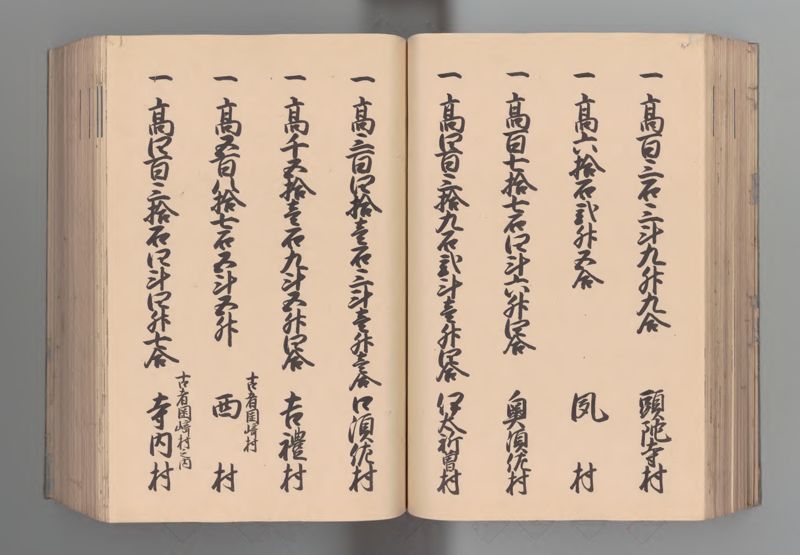 一 高百三石三斗九升九合 頭陀寺村
一 高六拾石弐升五合 凩村
一 高百七拾七石四斗六升四合 奥須佐村
一 高四百三拾九石弐斗壱升四合 伊太祈曽村
一 高三百四拾壱石三斗壱升壱合 口須佐村
一 高千五拾壱石九斗五升四合 吉禮村
一 高五百八拾七石五斗五升 古者岡崎村 西村
一 高四百三拾石四斗四升七合 古者岡崎村之内 寺内村